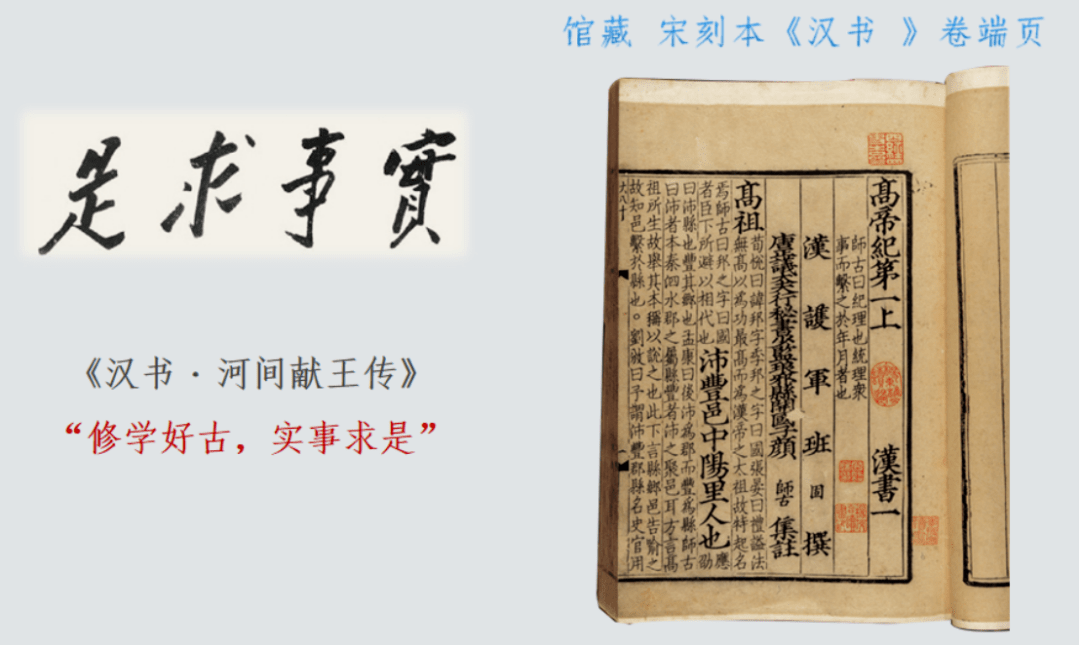 馆藏 宋刻本《汉书 》卷端页
實事求是
《汉书·河间献王传》
“修学好古，实事求是”
髙帝紀第一上 漢書一
師古曰紀理也統理衆
事而繫之於年月者也
漢護軍班固撰
議大夫行秘書監縣開國子顏師古集註
髙祖
荀悅曰諱邦字季邦之字曰國張晏曰禮謚法
無髙以為功最髙而為漢帝之太祖故特起名
焉師古曰邦之字曰國
者臣下所避以相代也
沛豐邑中陽里人也
應
劭
曰沛縣也豐其鄉也孟康曰後沛為郡而豐為縣師古
曰沛者本秦泗水郡之屬縣豐者沛之聚邑耳方言髙
祖所生故舉其本稱以說之也此下言縣鄉邑告喻之
故知邑繫於縣也。劉攽曰予謂沛豐郡縣名史官用
大八十